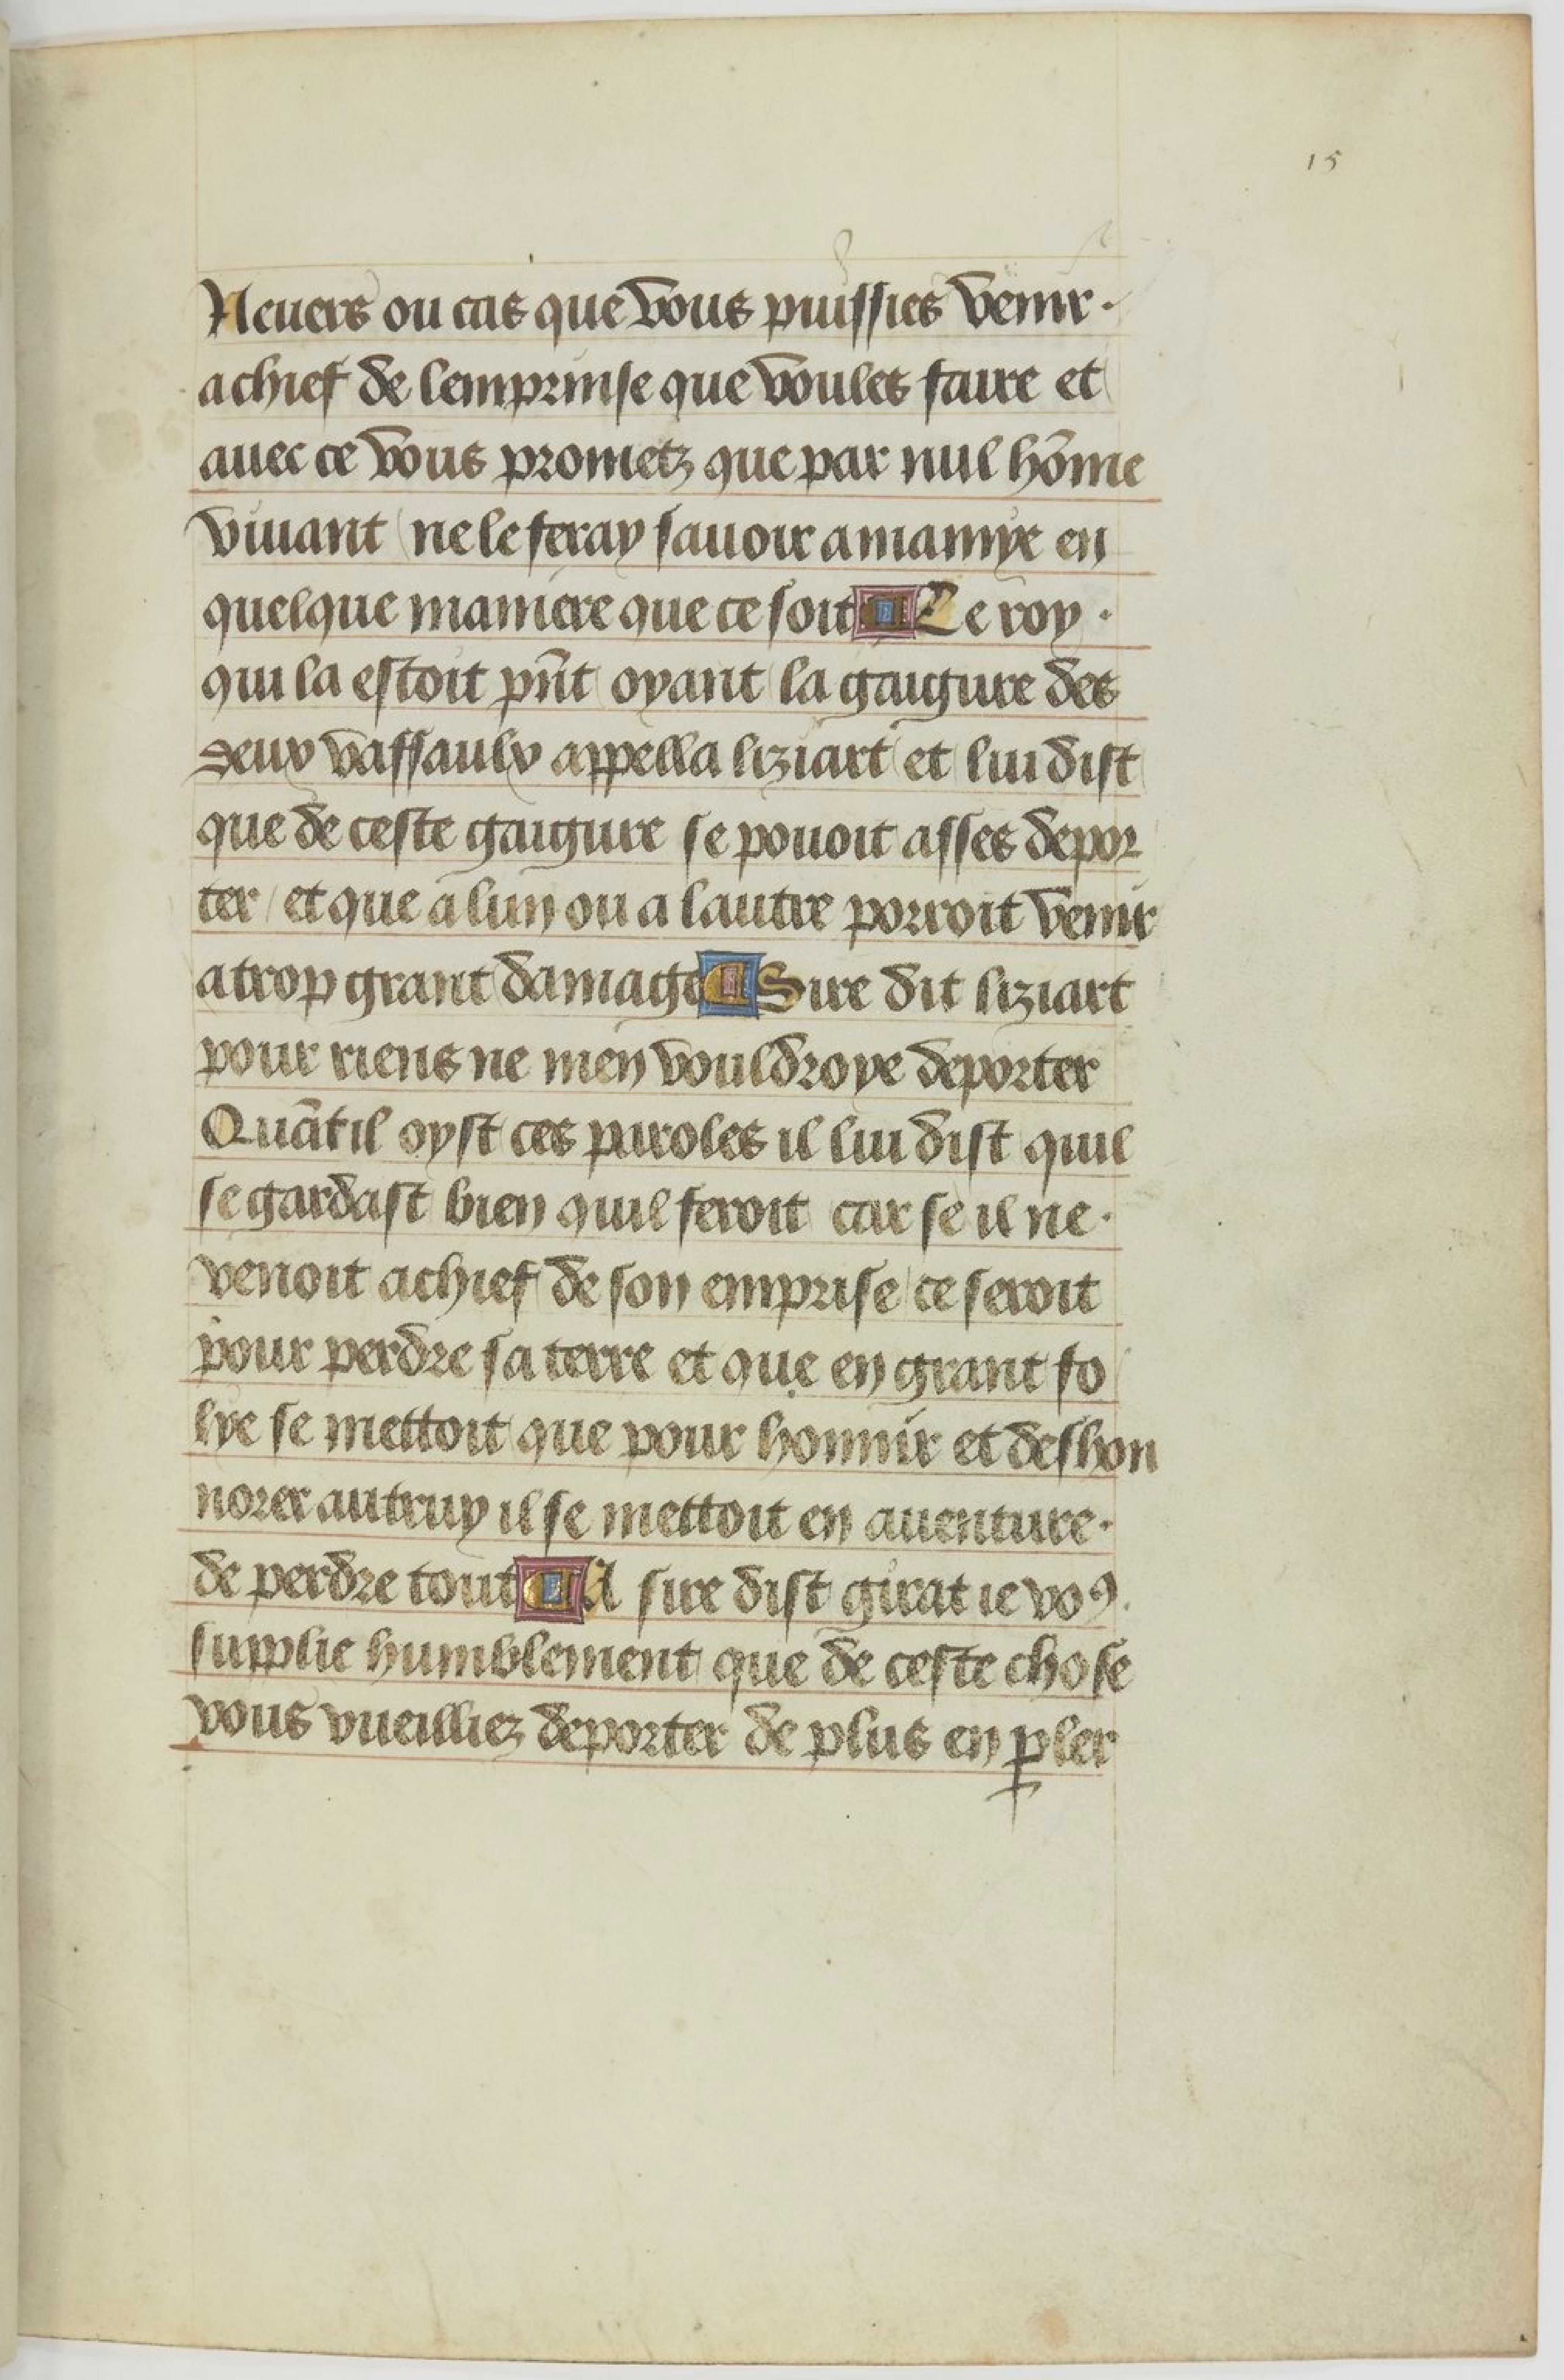 15
Neuers ou cas que vous puissies venir ·
a chief de lemprinse que voules faire et
auec ce vous prometz que par nul hom̄e
viuant ne le feray sauoir a mamye en
quelque maniere que ce soit ¶ Le roy ·
qui la estoit pn̄t oyant la gaigure des
deux vassaulx appella liziart et lui dist
que de ceste gaigure se pouoit asses depor
ter / et que a lun ou a lautre porroit venir
a trop grant damage ¶ Sire dit liziart
pour riens ne men vouldroye deporter
Quāt il oyst ces paroles il lui dist quil
se gardast bien quil feroit car se il ne ·
venoit a chief de son emprise ce seroit
pour perdre sa terre et que en grant fo
lye se mettoit que pour honnir et deshon
norer autruy il se mettoit en auenture ·
de perdre tout ¶ A sire dist girat ie voꝰ
supplie humblement que de ceste chose
vous vueilliez deporter de plus en ꝑler